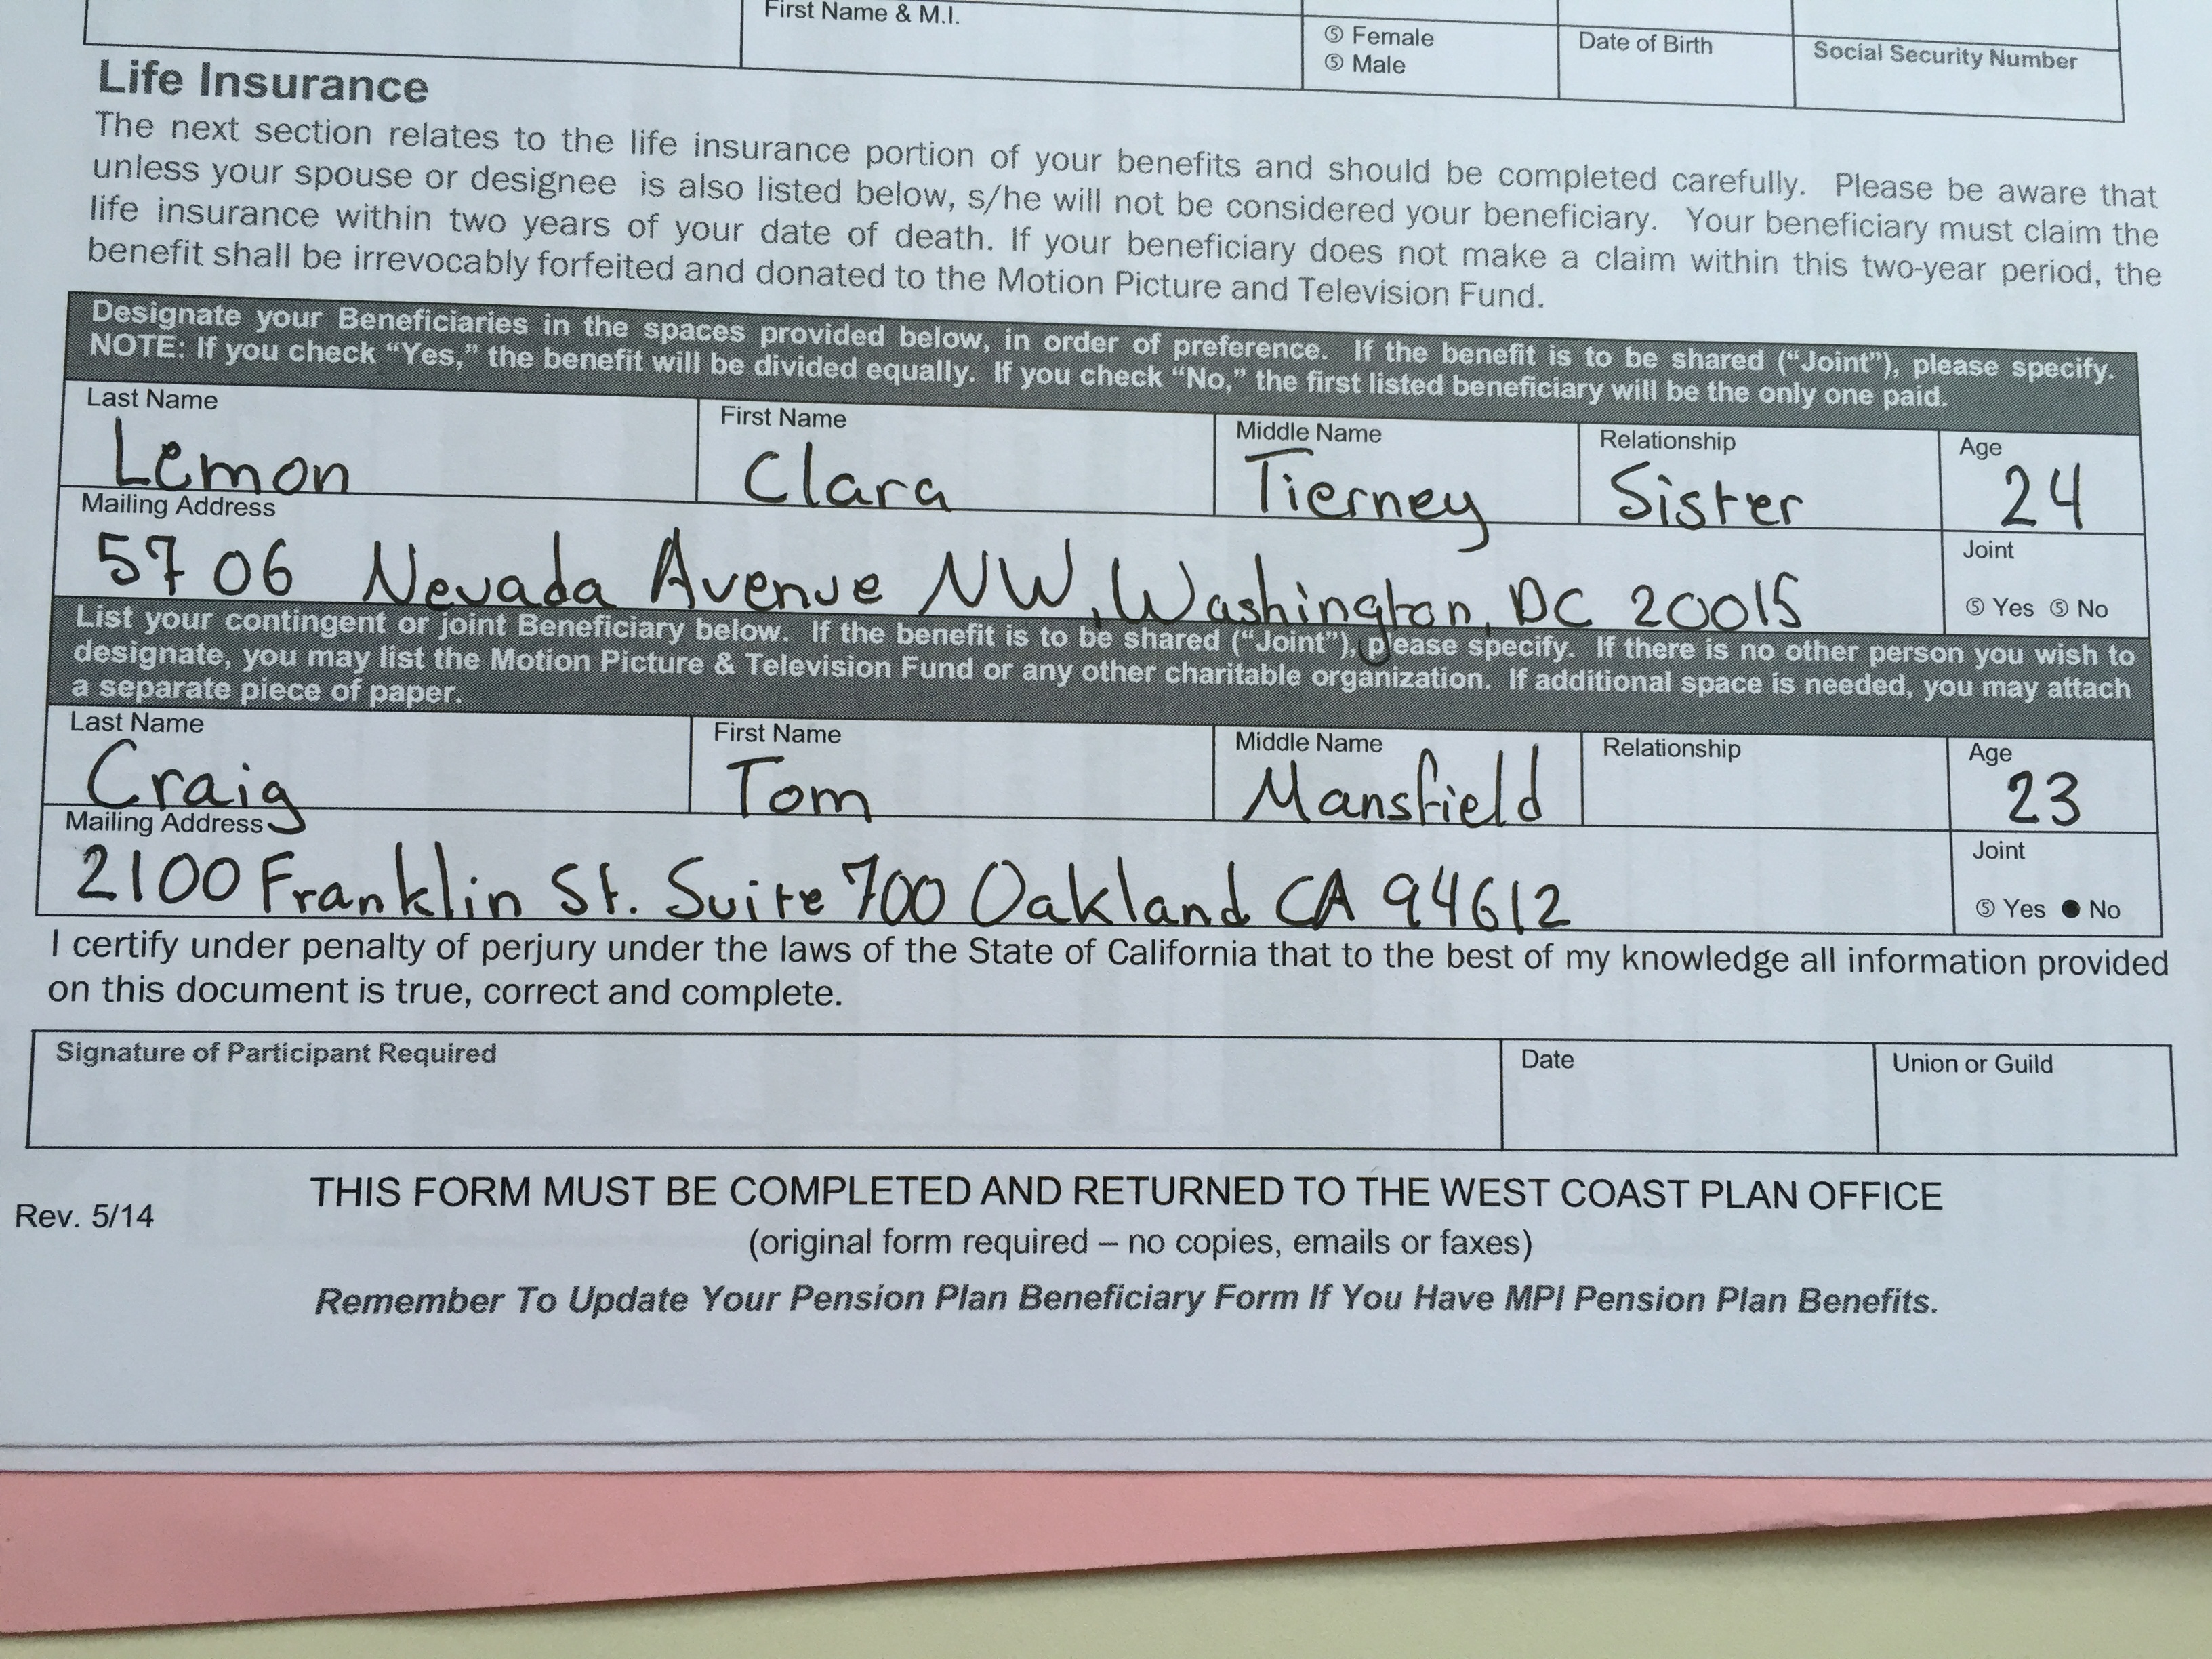 First Name & M.I.
⑤ Female
⑤ Male
Date of Birth
Social Security Number
Life Insurance
The next section relates to the life insurance portion of your benefits and should be completed carefully. Please be aware that
unless your spouse or designee is also listed below, s/he will not be considered your beneficiary. Your beneficiary must claim the
life insurance within two years of your date of death. If your beneficiary does not make a claim within this two-year period, the
benefit shall be irrevocably forfeited and donated to the Motion Picture and Television Fund.
Designate your Beneficiaries in the spaces provided below, in order of preference. If the benefit is to be shared ("Joint"), please specify.
NOTE: If you check "Yes," the benefit will be divided equally. If you check "No," the first listed beneficiary will be the only one paid.
Last Name First Name Middle Name Relationship Age
Lemon Clara Tierney Sister 24
Mailing Address Joint
5706 Nevada Avenue NW, Washington, DC 20015 ⑤ Yes ⑤ No
List your contingent or joint Beneficiary below. If the benefit is to be shared ("Joint"), please specify. If there is no other person you wish to
designate, you may list the Motion Picture & Television Fund or any other charitable organization. If additional space is needed, you may attach
a separate piece of paper.
Last Name First Name Middle Name Relationship Age
Craig Tom Mansfield 23
Mailing Address Joint
2100 Franklin St. Suite 700 Oakland CA 94612 ⑤ Yes ● No
I certify under penalty of perjury under the laws of the State of California that to the best of my knowledge all information provided
on this document is true, correct and complete.
Signature of Participant Required Date Union or Guild
THIS FORM MUST BE COMPLETED AND RETURNED TO THE WEST COAST PLAN OFFICE
Rev. 5/14
(original form required – no copies, emails or faxes)
Remember To Update Your Pension Plan Beneficiary Form If You Have MPI Pension Plan Benefits.